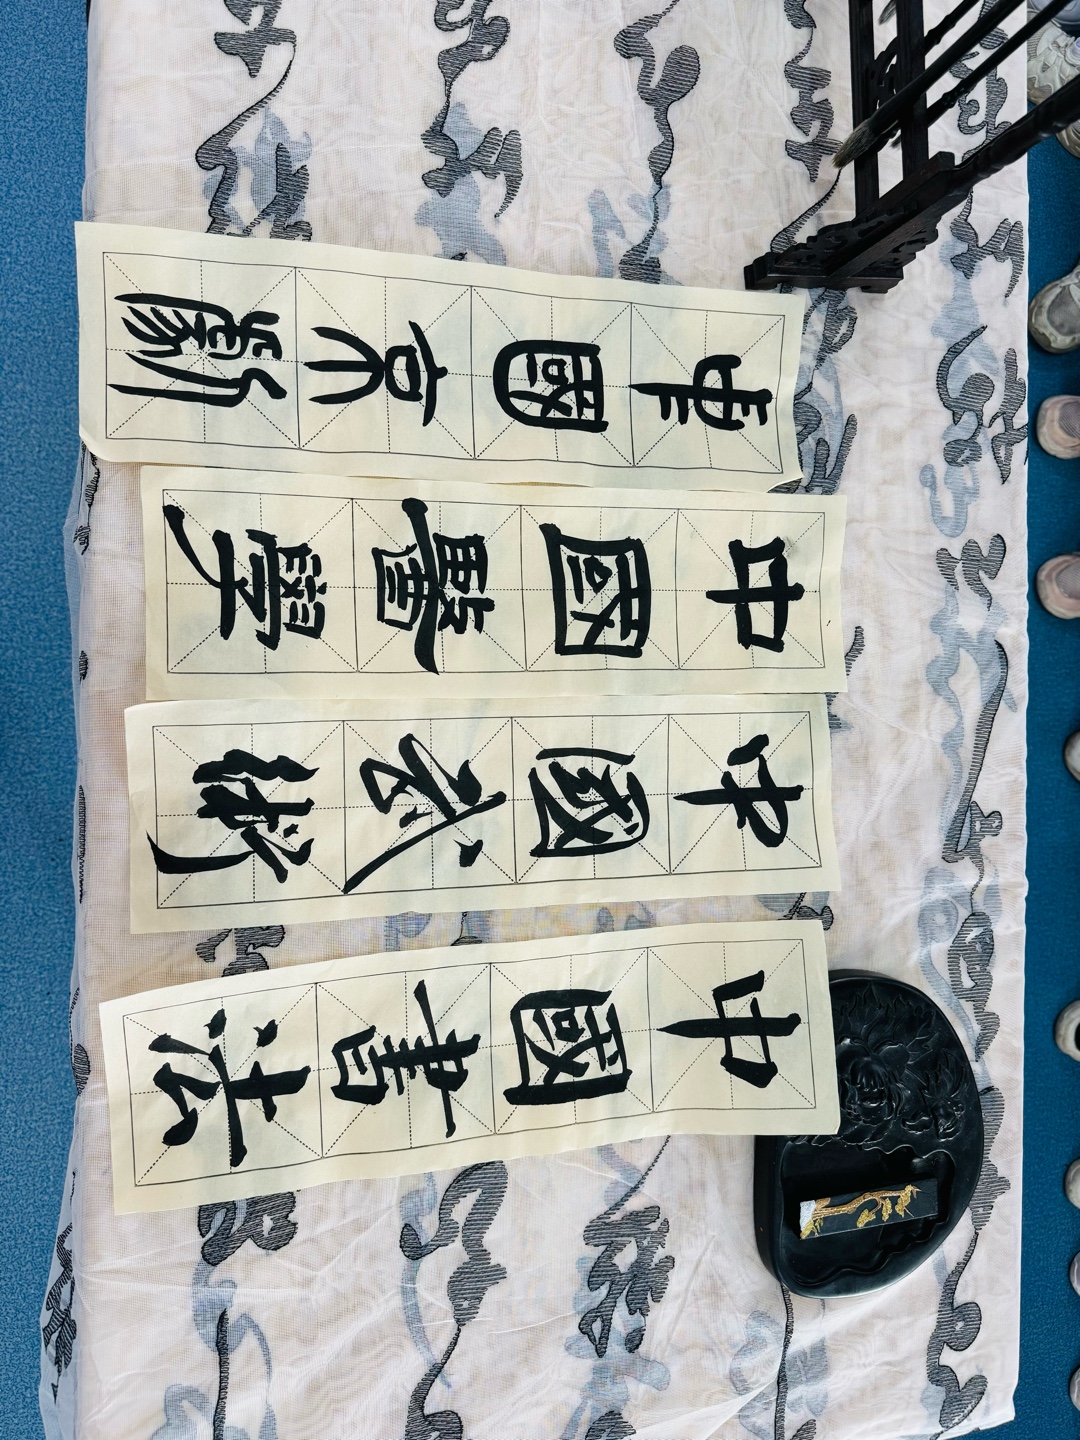 中國書法
中國武術
中國醫學
中國京劇